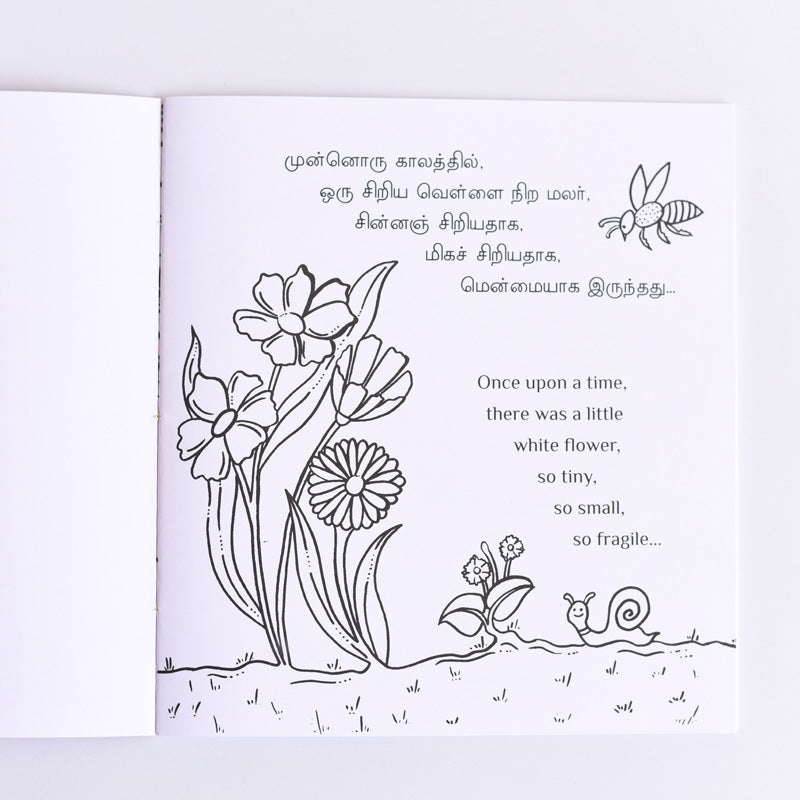 முன்னொரு காலத்தில்,
ஒரு சிறிய வெள்ளை நிற மலர்,
சின்னஞ் சிறியதாக,
மிகச் சிறியதாக,
மென்மையாக இருந்தது...
Once upon a time,
there was a little
white flower,
so tiny,
so small,
so fragile...